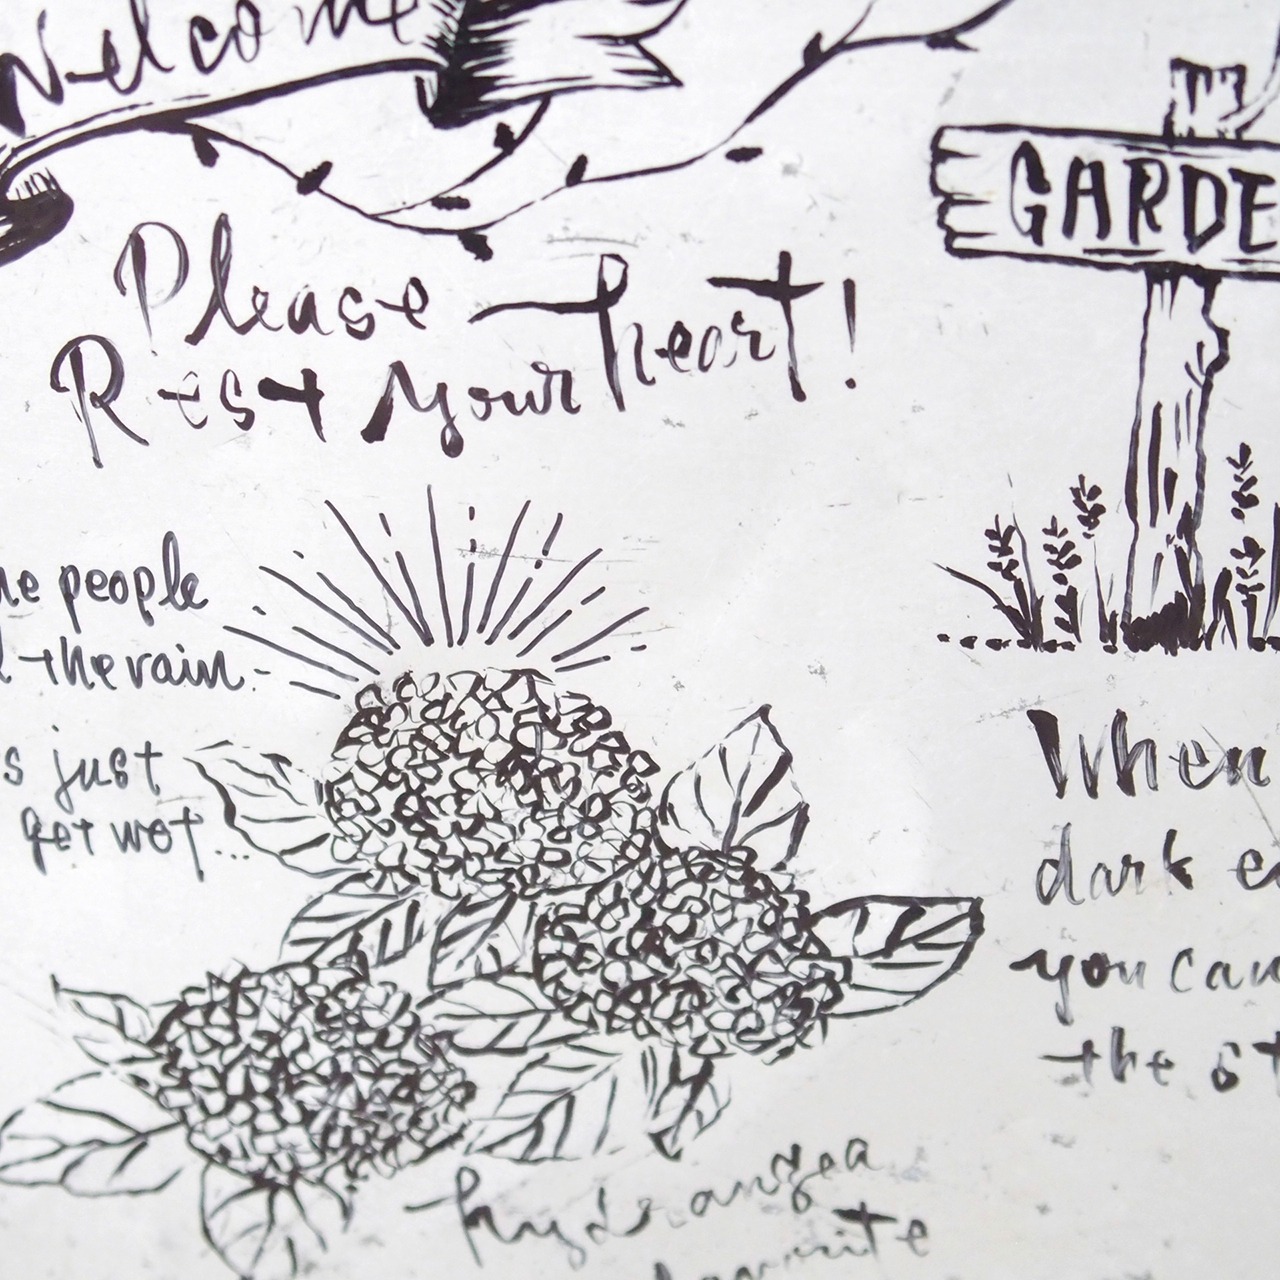 Welcome
Please
Rest your heart!
people
the rain.
s just
get wet...
GARDE
When
dark e
you can
the st
hydrangea